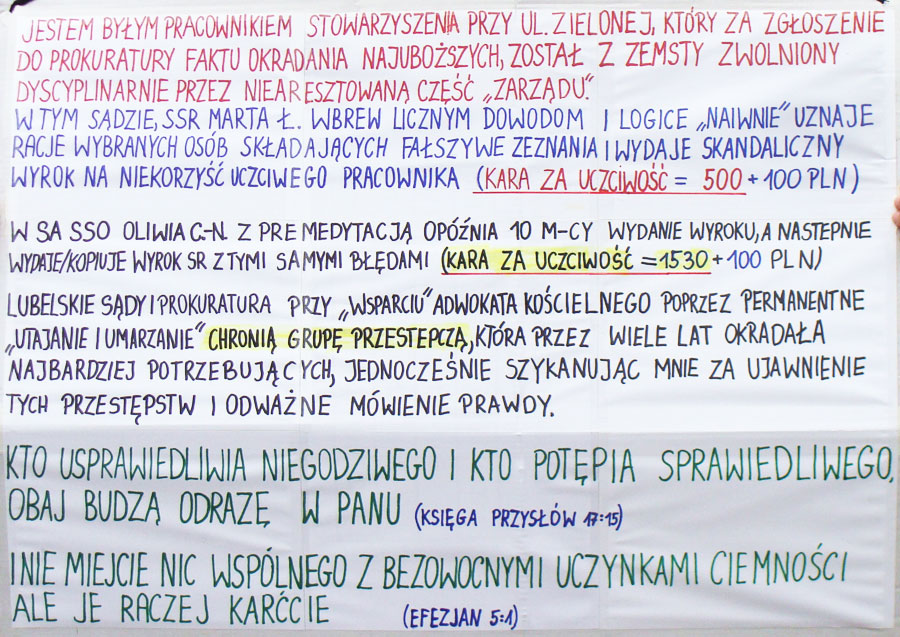 JESTEM BYŁYM PRACOWNIKIEM STOWARZYSZENIA PRZY UL. ZIELONEJ, KTÓRY ZA ZGŁOSZENIE
DO PROKURATURY FAKTU OKRADANIA NAJUBOŻSZYCH, ZOSTAŁ Z ZEMSTY ZWOLNIONY
DYSCYPLINARNIE PRZEZ NIEARESZTOWANĄ CZĘŚĆ „ZARZĄDU".
W TYM SĄDZIE, SSR MARTA Ł. WBREW LICZNYM DOWODOM I LOGICE „NAIWNIE" UZNAJE
RACJE WYBRANYCH OSÓB SKŁADAJĄCYCH FAŁSZYWE ZEZNANIA I WYDAJE SKANDALICZNY
WYROK NA NIEKORZYŚĆ UCZCIWEGO PRACOWNIKA (KARA ZA UCZCIWOŚĆ = 500 + 100 PLN)
W SA SSO OLIWIA C.-N. Z PREMEDYTACJĄ OPÓŹNIA 10 M-CY WYDANIE WYROKU, A NASTEPNIE
WYDAJE/KOPIUJE WYROK SR Z TYMI SAMYMI BŁĘDAMI (KARA ZA UCZCIWOŚĆ = 1530 + 100 PLN)
LUBELSKIE SĄDY I PROKURATURA PRZY „WSPARCIU" ADWOKATA KOŚCIELNEGO POPRZEZ PERMANENTNE
„UTAJANIE I UMARZANIE" CHRONIĄ GRUPĘ PRZESTEPCZĄ, KTÓRA PRZEZ WIELE LAT OKRADAŁA
NAJBARDZIEJ POTRZEBUJĄCYCH, JEDNOCZEŚNIE SZYKANUJĄC MNIE ZA UJAWNIENIE
TYCH PRZESTĘPSTW I ODWAŻNE MÓWIENIE PRAWDY.
KTO USPRAWIEDLIWIA NIEGODZIWEGO I KTO POTĘPIA SPRAWIEDLIWEGO,
OBAJ BUDZĄ ODRAZĘ W PANU (KSIĘGA PRZYSŁÓW 17:15)
I NIE MIEJCIE NIC WSPÓLNEGO Z BEZOWOCNYMI UCZYNKAMI CIEMNOŚCI
ALE JE RACZEJ KARĆCIE (EFEZJAN 5:1)